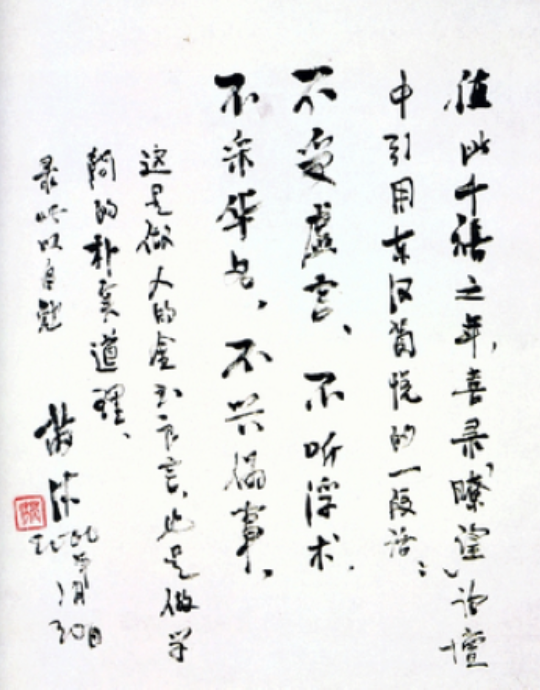 值此千禧之年,喜录《瞭望》论坛
中引用东汉荀悦的一段话:
不受虚言、不听浮术、
不采华名、不兴伪事。
这是做人的金玉良言,也是做学
问的朴实道理、
录此以自勉
2000年1月30日